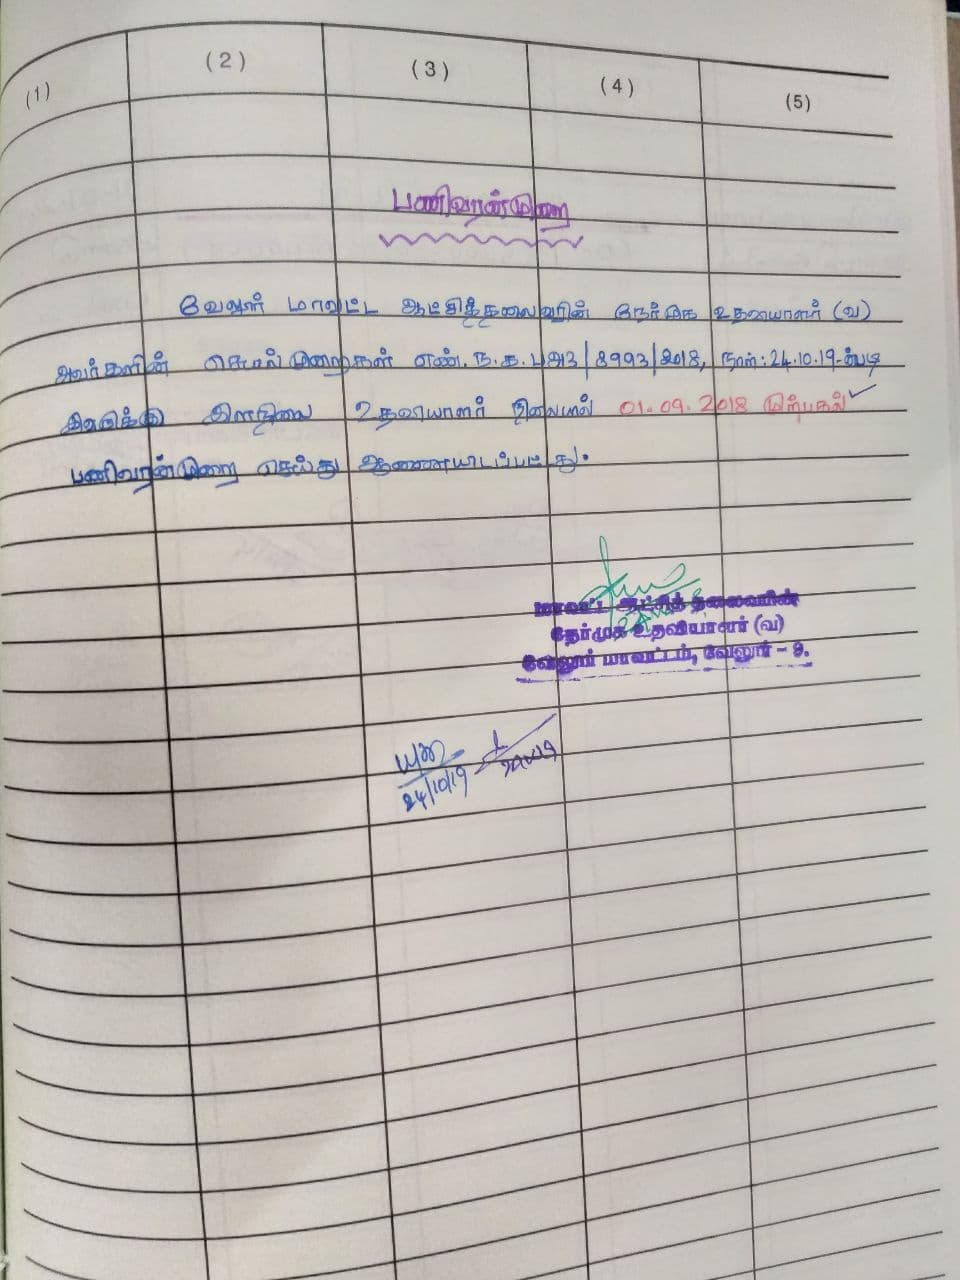 (1) (2) (3) (4) (5)
பணிவரன்முறை
வேலூர் மாவட்ட ஆட்சித்தலைவரின் நேர்முக உதவியாளர் (வ)
அவர்களின் செயல்முறைகள் எண். ந.க. அ3/8993/2018, நாள்: 24.10.19-ன்படி
இவருக்கு இளநிலை உதவியாளர் நிலையில் 01.09.2018 முற்பகல்
பணிவரன்முறை செய்து ஆணையிடப்பட்டது.
மாவட்ட ஆட்சித் தலைவரின்
நேர்முக உதவியாளர் (வ)
வேலூர் மாவட்டம், வேலூர் - 9.
24/10/19